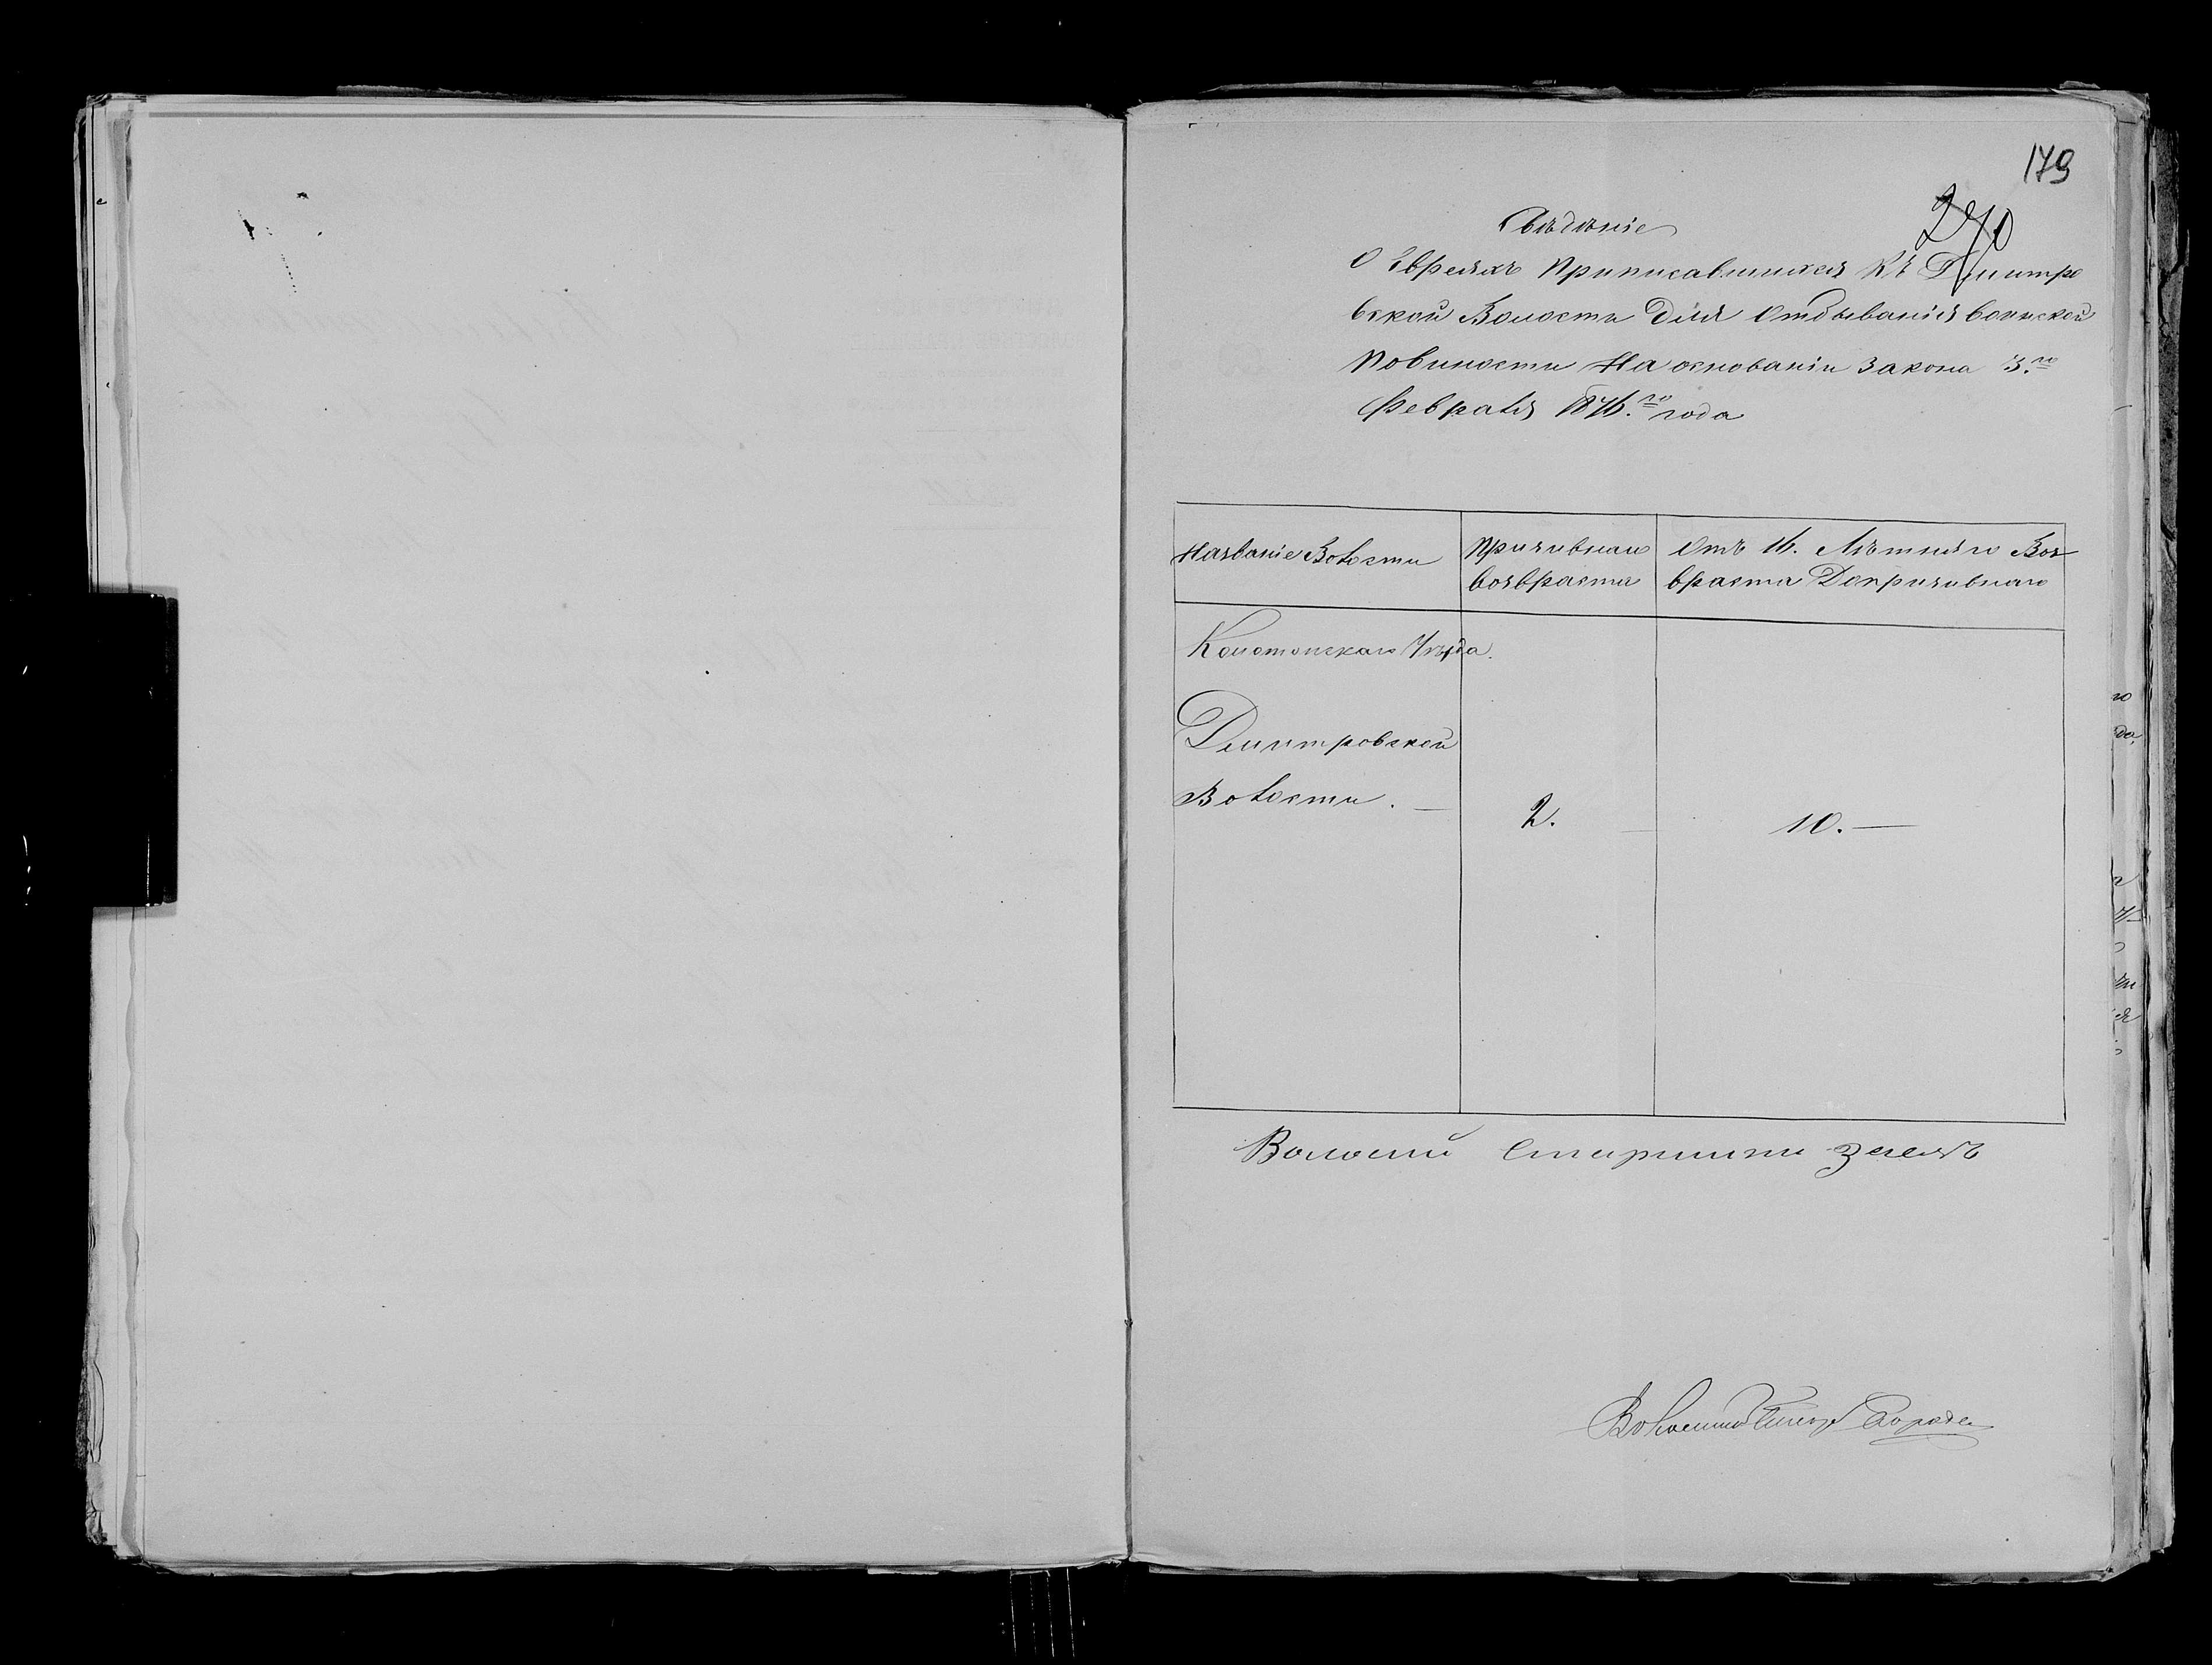 179
270
Свѣдѣніе
О Евреяхъ приписавшихся къ Дмитро
вской Волости для отбыванія воинской
повиности на основаніи закона 3.го
Февраля 1876.го года
Названіе Волости
Призивнаго возвраста
Отъ 16. Лѣтняго Воз-
враста До призивнаго
Конотопскаго Уѣзда.
Дмитровской
Волости. —
2. —
10. —
Волосний Старшина
Волостной Писарь